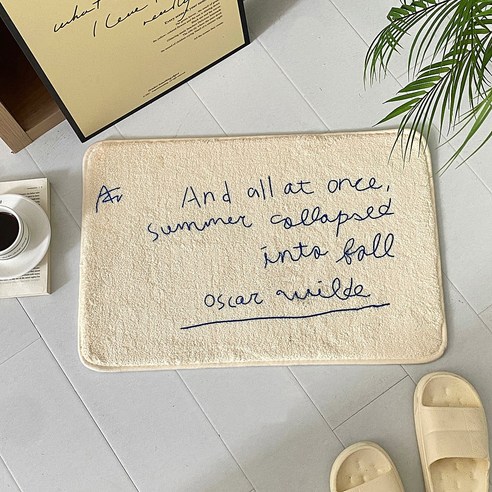 I love
And all at once,
summer collapsed
into fall
oscar wilde